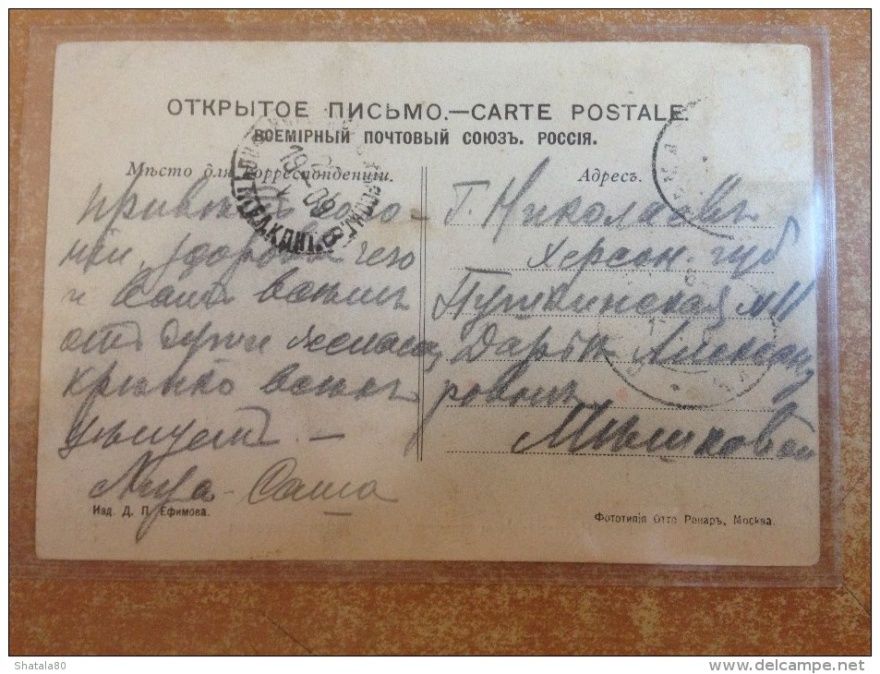 ОТКРЫТОЕ ПИСЬМО.—CARTE POSTALE.
ВСЕМІРНЫЙ ПОЧТОВЫЙ СОЮЗЪ. РОССІЯ.
Мѣсто для корреспонденціи.
здоровы чего
и Вамъ всѣмъ
отъ души желаемъ
крѣпко всѣхъ
цѣлуемъ —
Саша
Адресъ.
Г. Николаевъ
Херсон. губ
Пушкинская
Дарьѣ Александ
ровнѣ
Мѣшковой
Изд. Д. П. Ефимова.
Фототипія Отто Ренаръ, Москва.
Shatala80
http://www.delcampe.net